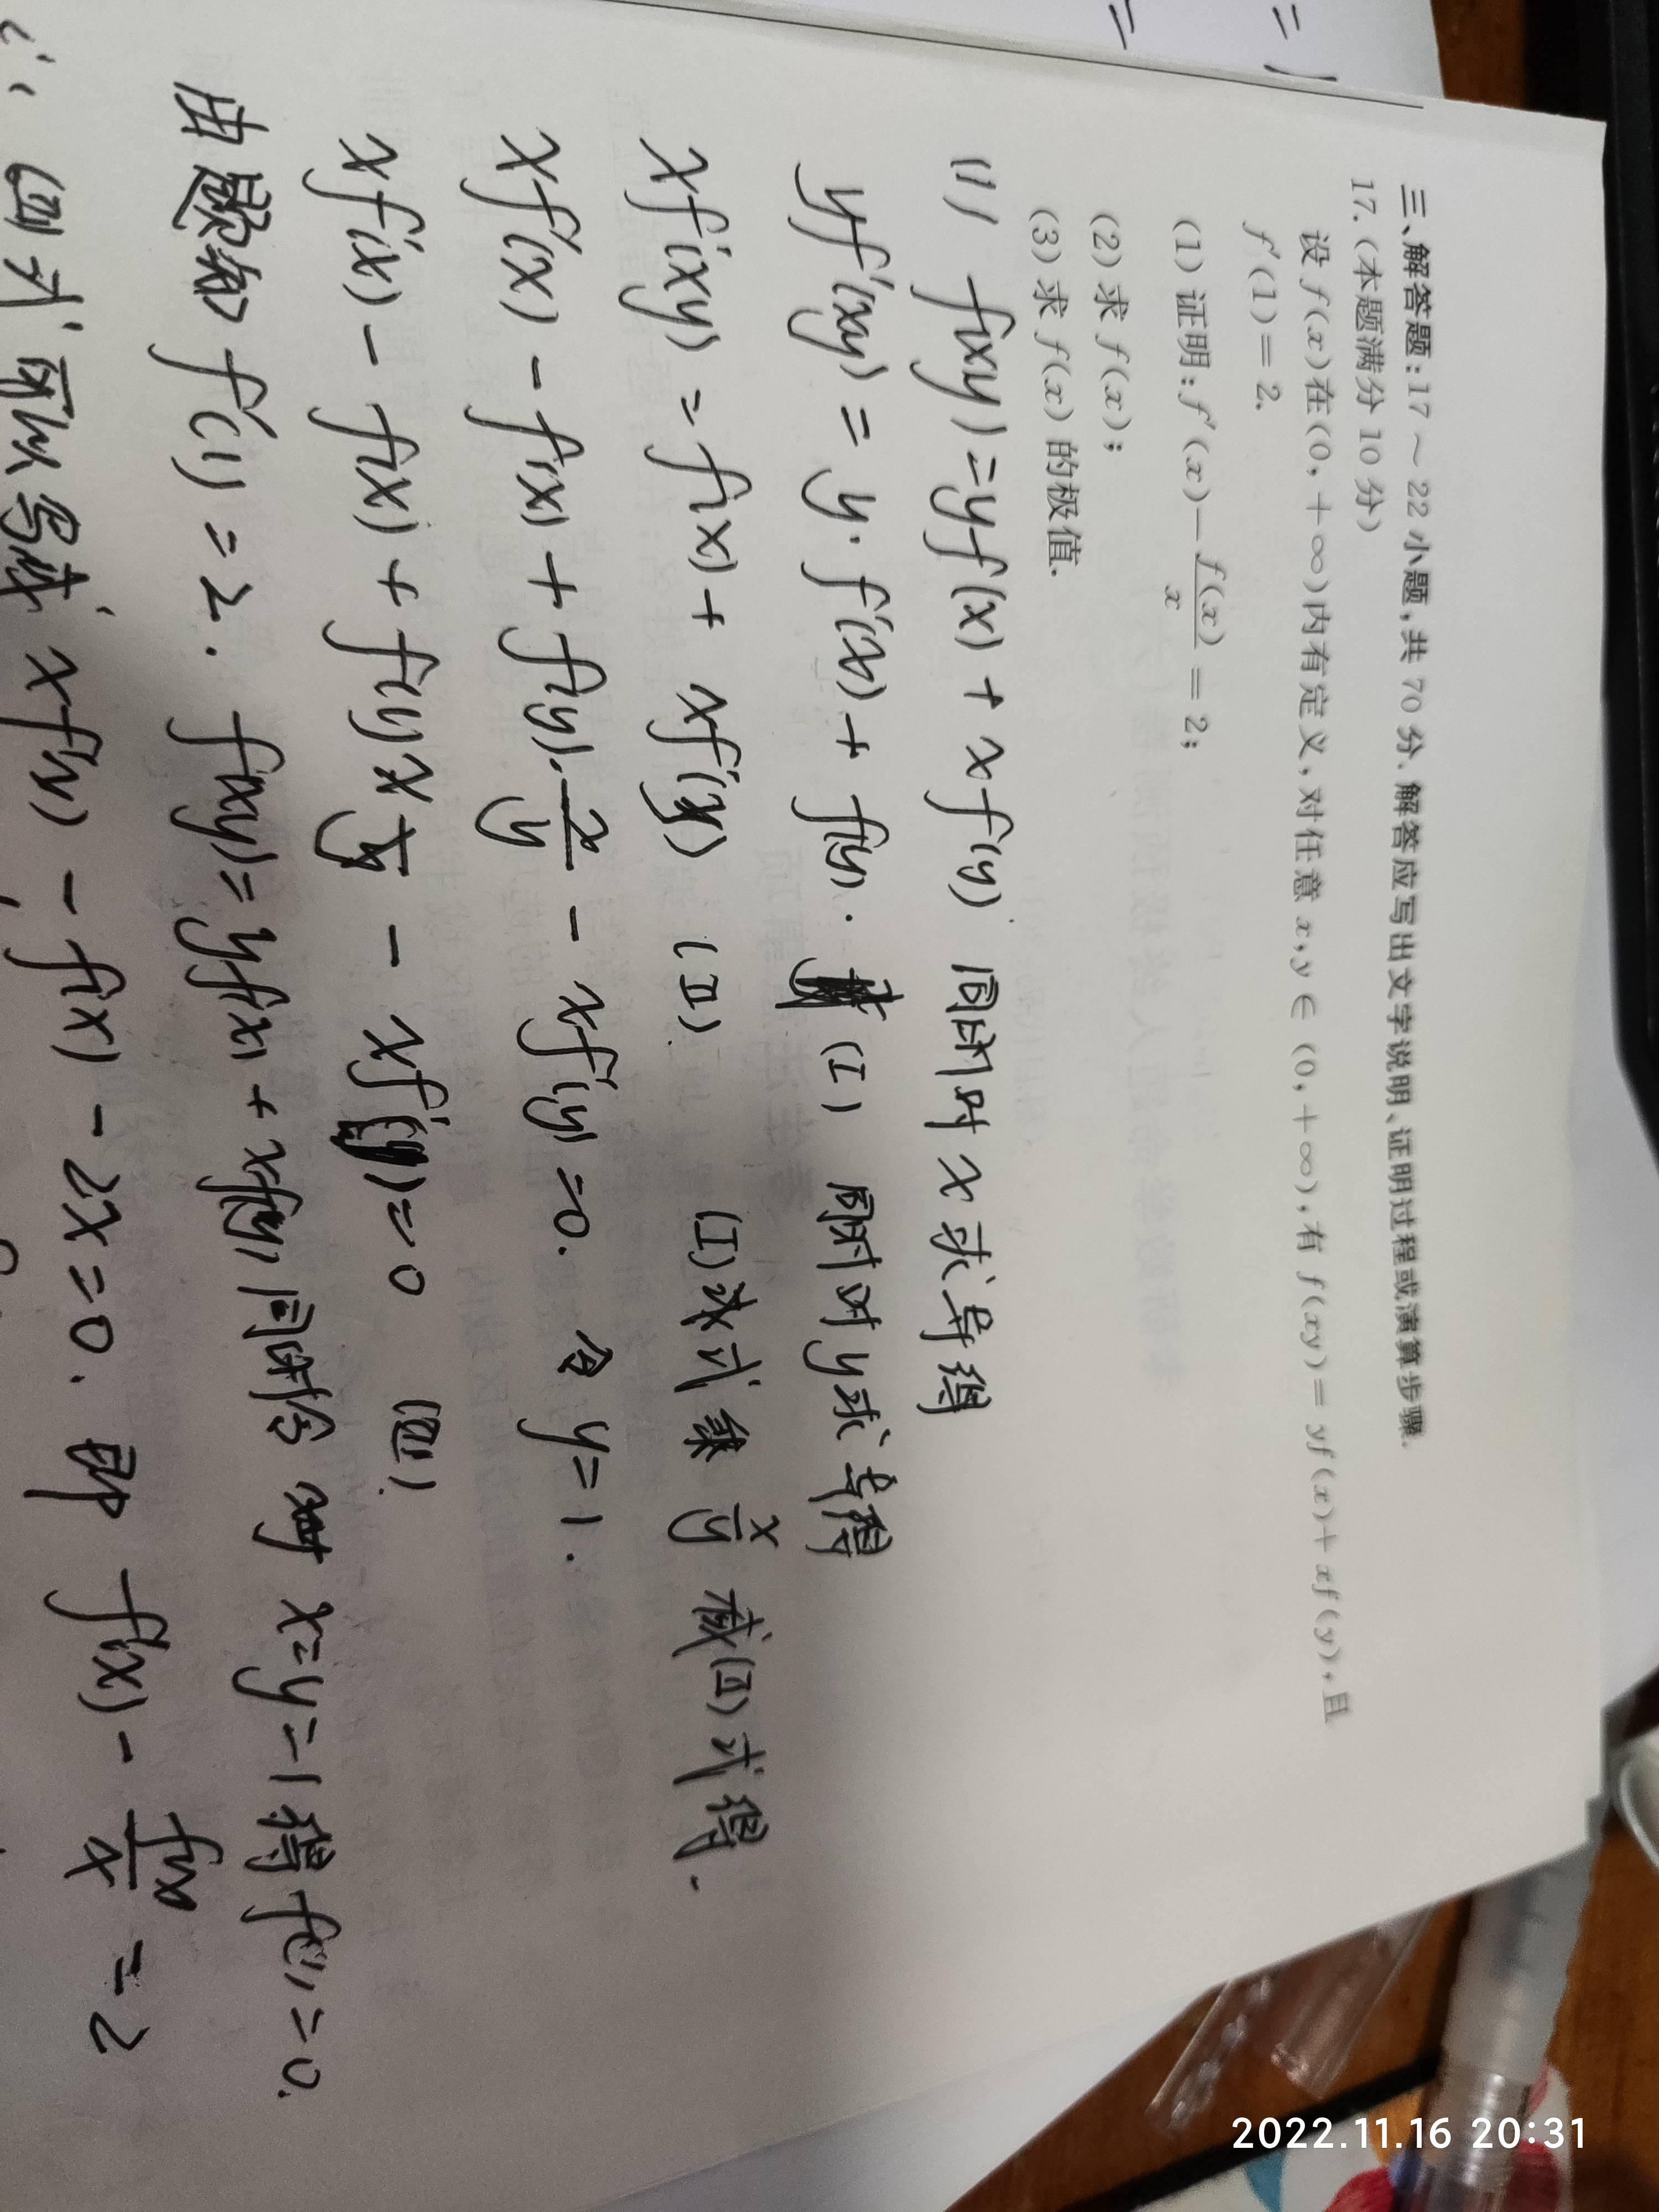 三、解答题:17～22小题,共70分.解答应写出文字说明、证明过程或演算步骤.
17.(本题满分10分)
设f(x)在(0,+∞)内有定义,对任意x,y∈(0,+∞),有f(xy)=yf(x)+xf(y),且
f′(1)=2.
(1)证明:f′(x)-f(x)/x=2;
(2)求f(x);
(3)求f(x)的极值.
(1) f(xy)=yf(x)+xf(y) 同时对x求导得
yf′(xy)=y·f′(x)+f(y). (I) 同时对y求导得
xf′(xy)=f(x)+xf′(y) (II) (I)式乘x/y减(II)式得.
xf′(x)-f(x)+f(y)·x/y-xf′(y)=0. 令y=1.
xf′(x)-f(x)+f(1)x-xf′(1)=0 (四).
由题知f′(1)=2. f(xy)=yf(x)+xf(y)同时令x=y=1得f(1)=0.
(四)式可以写成xf′(x)-f(x)-2x=0. 即f′(x)-f(x)/x=2
2022.11.16 20:31